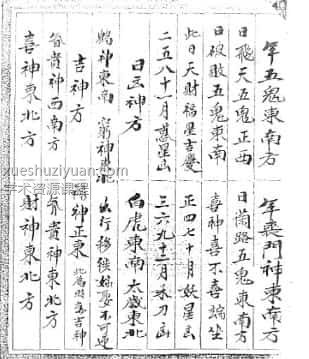 年五鬼東南方
年喪門神東南方
日飛天五鬼正西
日蘭路五鬼東南方
日破敗五鬼東南
喜神喜不喜端坐
此日天財福星吉慶
正四七十月妖星山
二五八十一月惑星山
三六九十二月禾刀山
日凶神方
白虎東南 太歲東北
鶴神東南
出行移徙
不可逆
吉神方
福神正東 此為時為吉神
貴神西南方
貴神東北方
喜神東北方
財神東北方
xueshuziyuan.com